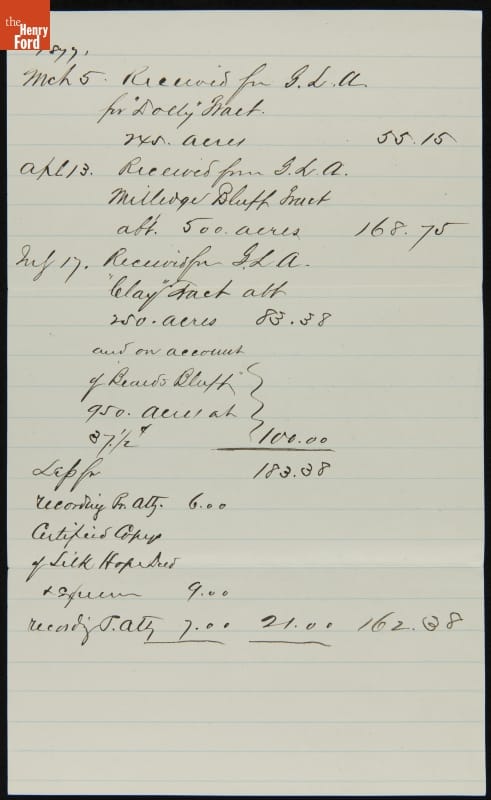 the
Henry
Ford
1877.
Mch 5. Received for G. L. A.
for "Dolly" Tract.
245. acres 55.15
Apl 13. Received from G. L. A.
Milledge Bluff Tract
abt. 500. acres 168.75
17. Received for G. L A.
"Clay" Tract abt
250. acres 83.38
and on account
of Beards Bluff
950. acres at
37.1/2 100.00
Less for 183.38
recording Pr. Atty. 6.00
Certified Copy
of Silk Hope Deed
9.00
recordg P. Atty 7.00 21.00 162.38